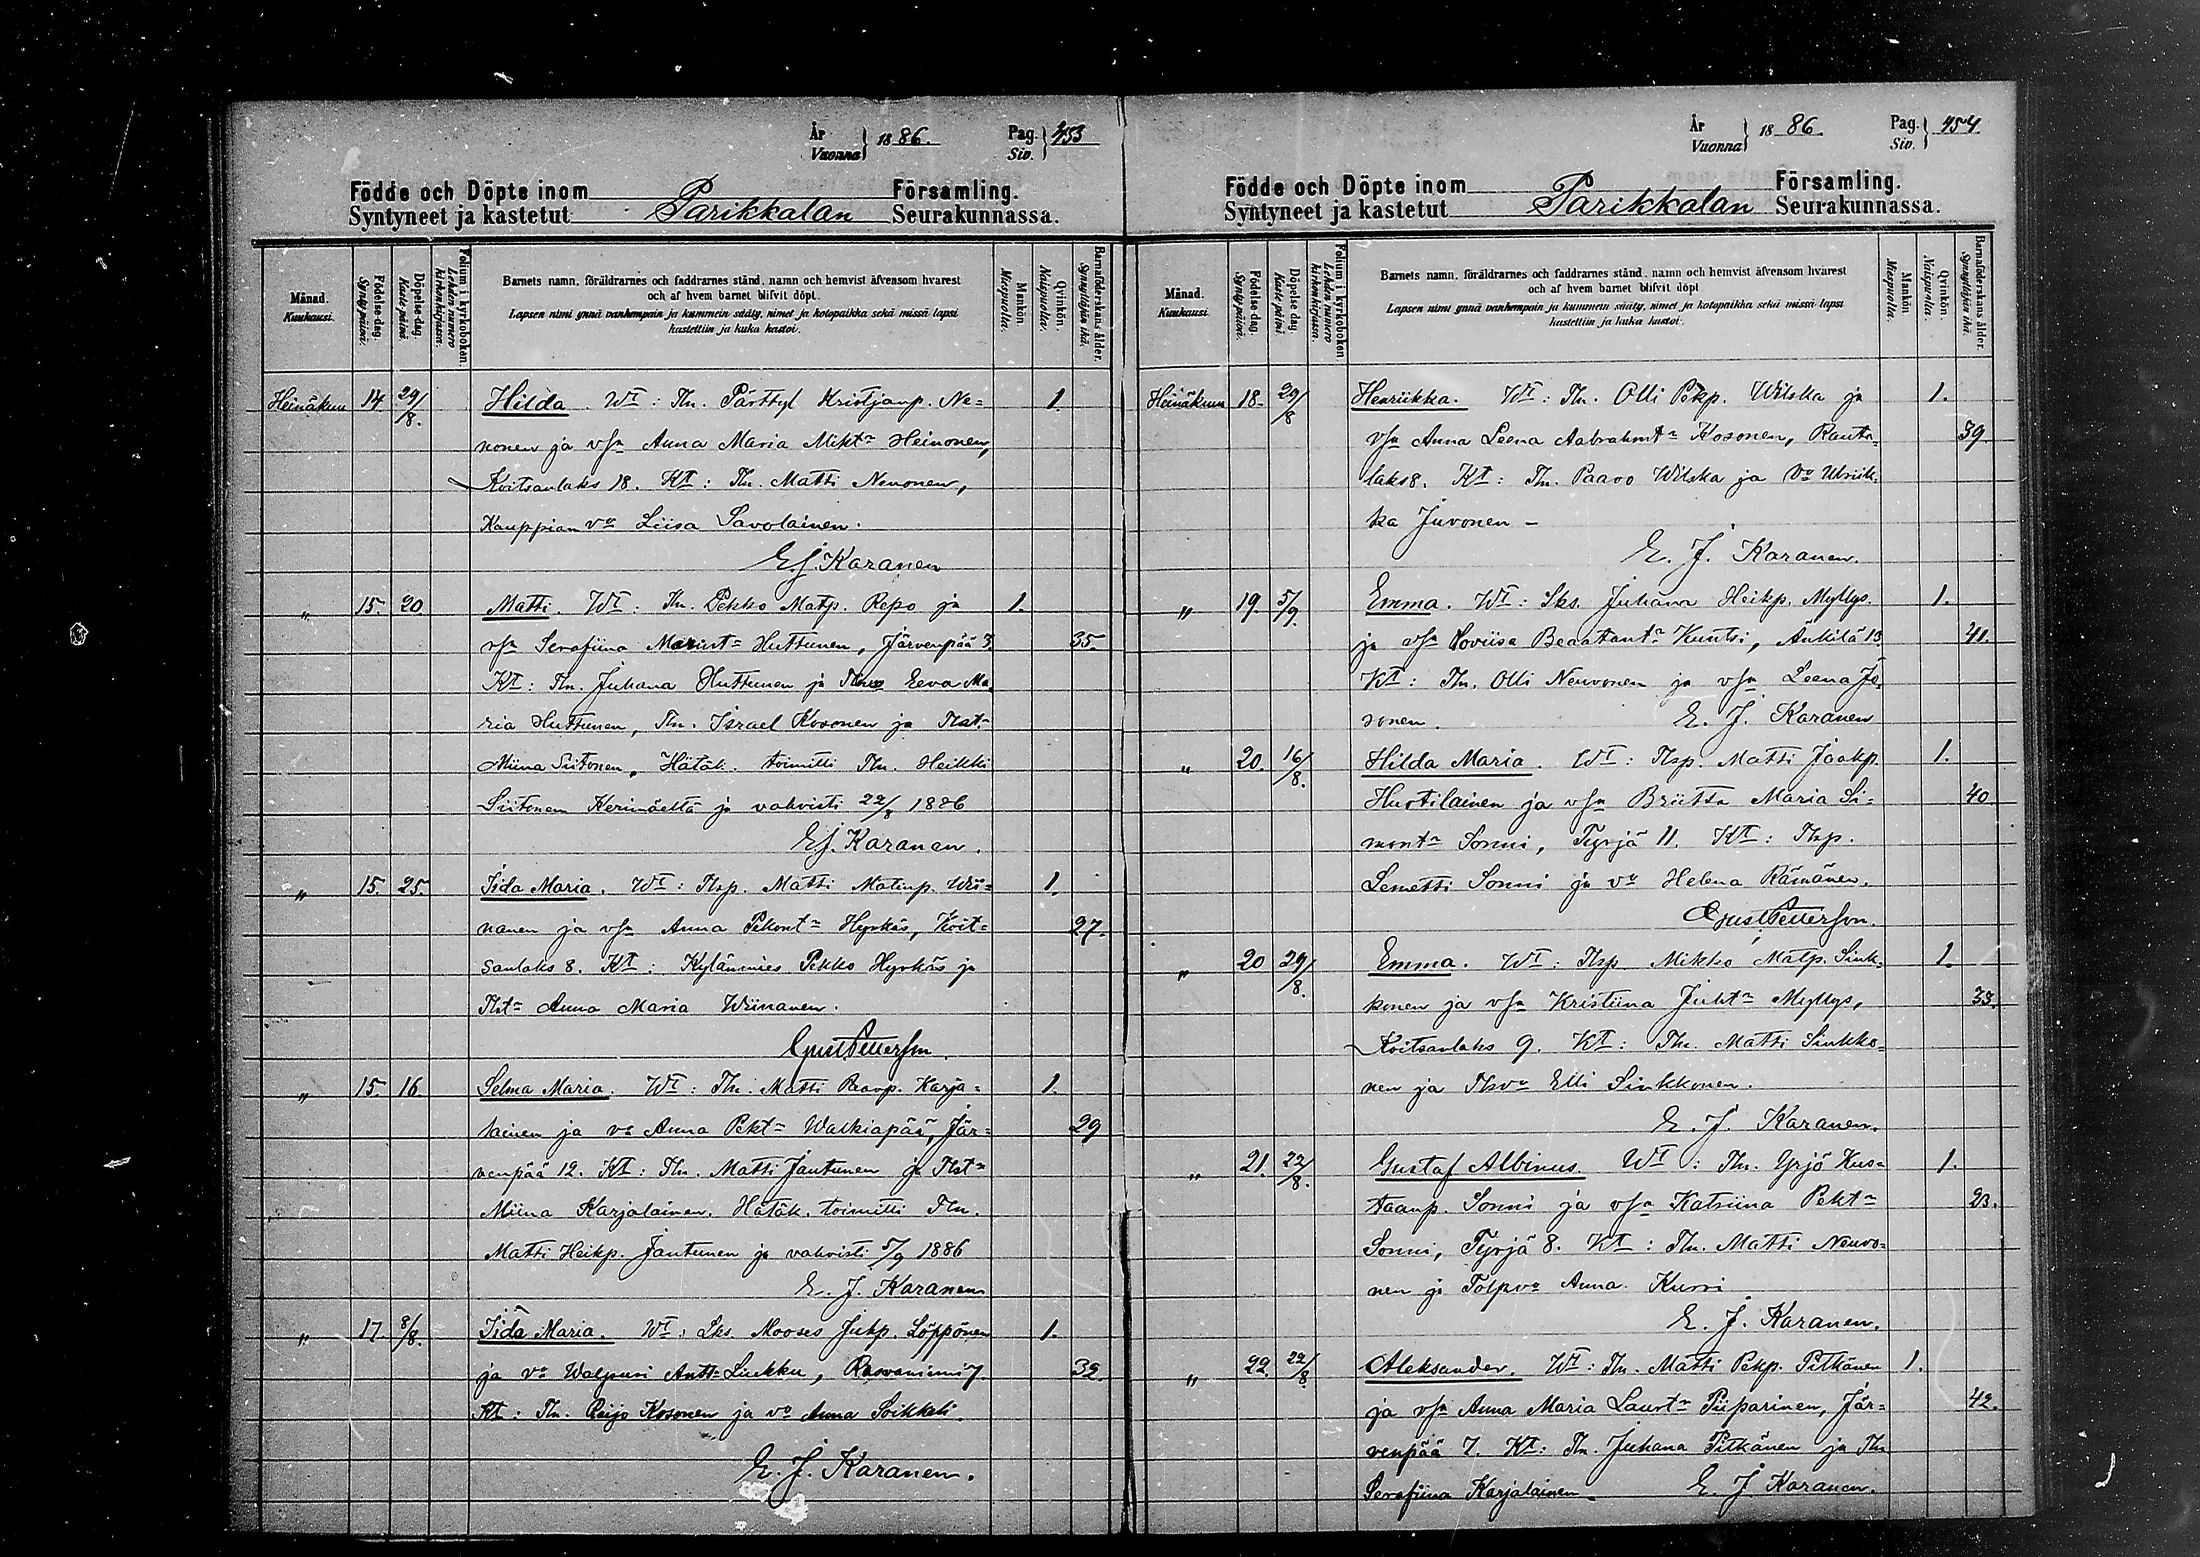 År Vuonna } 1886. Pag. Siv. } 453
Födde och Döpte inom Parikkalan Församling.
Syntyneet ja kastetut Seurakunnassa.
Månad. Kuukausi.
Födelse-dag. Syntypäivä.
Döpelse-dag. Kaste päivä.
Folium i kyrkoboken. Lehden numero kirkonkirjassa.
Barnets namn, föräldrarnes och faddrarnes stånd, namn och hemvist äfvensom hvarest
och af hvem barnet blifvit döpt.
Lapsen nimi ynnä vanhempain ja kummein sääty, nimet ja kotopaikka sekä missä lapsi
kastettiin ja kuka kastoi.
Mankön. Miespuolia.
Qvinkön. Naispuolia.
Barnaföderskans ålder. Synnyttäjän ikä.
Heinäkuu 14 29/8. Hilda. Wt: Tln. Pärttyl Kristjanp. Ne= 1.
nonen ja vsa Anna Maria Mikt= Heinonen,
Koitsanlaks 18. Kt: Tln. Matti Nenonen,
Kauppian vo Liisa Savolainen.
E.J. Karanen
" 15. 20 Matti. Wt: Tln. Pekko Matp. Repo ja 1.
vsa Serafiina Huttunen, Järvenpää 3. 35.
Kt: Tln. Juhana Huttunen ja Eeva Ma=
ria Huttunen, Tln. Israel Kosonen ja Tlst=
Miina Siitonen, Hätäk. toimitti Tln. Heikki
Siitonen Kerimäeltä ja vahvisti 22/8 1886
E.J. Karanen.
" 15. 25. Iida Maria. Wt: Tlsp. Matti Matinp. Wii= 1.
nanen ja vsa Anna Pekont= Hyrkäs, Koit= 27.
sanlaks 8. Kt: Kylänmies Pekko Hyrkäs ja
Tlst= Anna Maria Wiinanen.
Gust Petterson.
" 15. 16. Selma Maria. Wt: Tln. Matti Paavp. Karja= 1.
lainen ja vo Anna Pekt= Walkiapää, Jär= 29
venpää 12. Kt: Tln. Matti Jantunen ja Tlst=
Miina Karjalainen. Hätäk. toimitti Tln.
Matti Heikp. Jantunen ja vahvisti 5/9 1886
E. J. Karanen
" 17. 8/8. Iida Maria. Wt: Lks. Mooses Juhp. Löppönen 1.
ja vo Walpuri Antt= Liukku, Rasvaniemi 7. 32.
Kt: Tln. Reijo Kosonen ja vo Anna Soikkeli.
E. J. Karanen.
År Vuonna } 1886. Pag. Siv. } 454
Födde och Döpte inom Parikkalan Församling.
Syntyneet ja kastetut Seurakunnassa.
Månad. Kuukausi.
Födelse-dag. Syntypäivä.
Döpelse dag. Kaste päivä.
Folium i kyrkoboken. Lehden numero kirkonkirjassa.
Barnets namn, föräldrarnes och faddrarnes stånd, namn och hemvist äfvensom hvarest
och af hvem barnet blifvit döpt
Lapsen nimi ynnä vanhempain ja kummein sääty, nimet ja kotopaikka sekä missä lapsi
kastettiin ja kuka kastoi.
Mankön. Miespuolia.
Qvinkön. Naispuolia.
Barnaföderskans ålder. Synnyttäjän ikä.
Heinäkuu 18. 29/8 Henriikka. Wt: Tln. Olli Pekp. Wilska ja 1.
vsa Anna Leena Aabrahmt= Kosonen, Rauta= 39
laks 8. Kt: Tln. Paavo Wilska ja vo Ulriik=
ka Juvonen –
E. J. Karanen.
" 19 5/9. Emma. Wt: Lks. Juhana Heikp. Myllys. 1.
ja vsa Loviisa Beaatant= Kuntsi, Änkilä 13. 41.
Kt: Tln. Olli Neuvonen ja vsa Leena Jo=
ronen. E. J. Karanen
" 20. 16/8. Hilda Maria. Wt: Tlsp. Matti Jaakp. 1.
Huotilainen ja vsa Briitta Maria Si= 40.
mont= Sonni, Tyrjä 11. Kt: Tlsp.
Lemetti Sonni ja vo Helena Rämänen.
Gust Petterson.
" 20 29/8. Emma. Wt: Tlsp. Mikko Matp. Sink= 1.
konen ja vsa Kristiina Juht= Myllys, 33.
Koitsanlaks 9. Kt: Tln. Matti Sinkko=
nen ja Tlsvo Elli Sinkkonen.
E. J. Karanen.
" 21. 22/8. Gustaf Albinus. Wt: Tln. Yrjö Kus= 1.
taanp. Sonni ja vsa Katriina Pekt= 23.
Sonni, Tyrjä 8. Kt: Tln. Matti Neuvo=
nen ja Tolpvo Anna Kurri
E. J. Karanen.
" 22. 22/8. Aleksander. Wt: Tln. Matti Pekp. Pitkänen 1.
ja vsa Anna Maria Laurt= Piiparinen, Jär= 42.
venpää 7. Kt: Tln. Juhana Pitkänen ja Tln
Serafiina Karjalainen. E. J. Karanen.